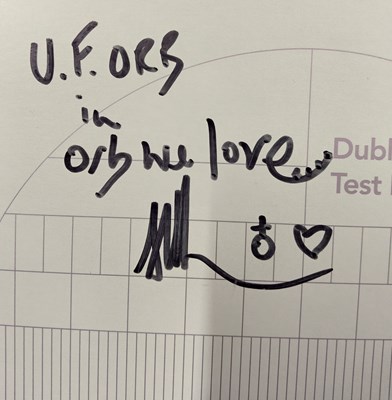 U.F.ORB
in
orb we love....
Dubl
Test